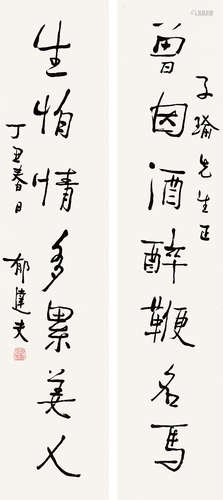 曾因酒醉鞭名馬
子瑜先生正
生怕情多累美人
丁丑春日
郁達夫